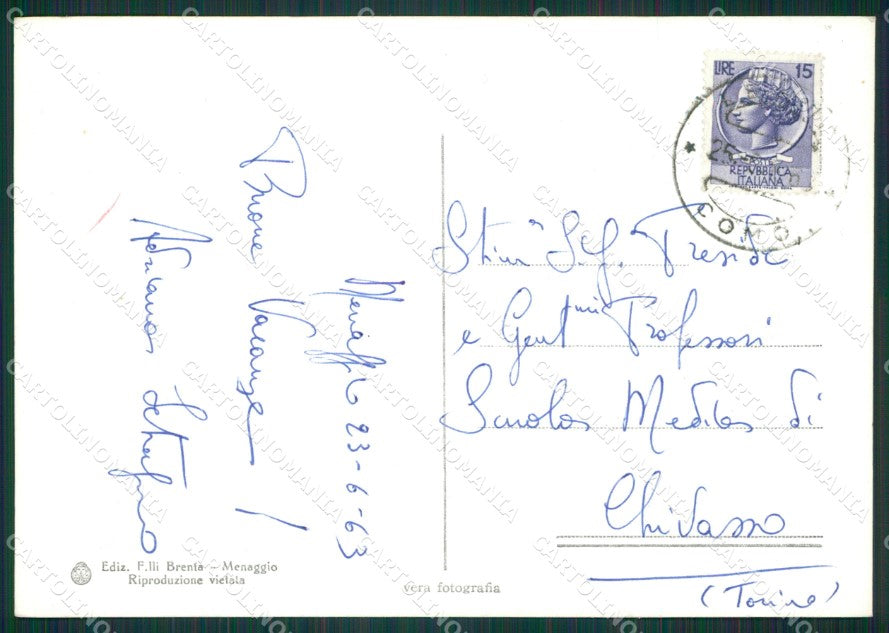 Buone Vacanze!
Menaggio 23-6-63
Adriano
LIRE 15
REPVBBLICA
ITALIANA
COMO
Stim. S.g. Preside
e Gent.mi Professori
Scuola Media di
Chivasso
(Torino)
Ediz. F.lli Brenta - Menaggio
Riproduzione vietata
vera fotografia
CARTOLINOMANIA